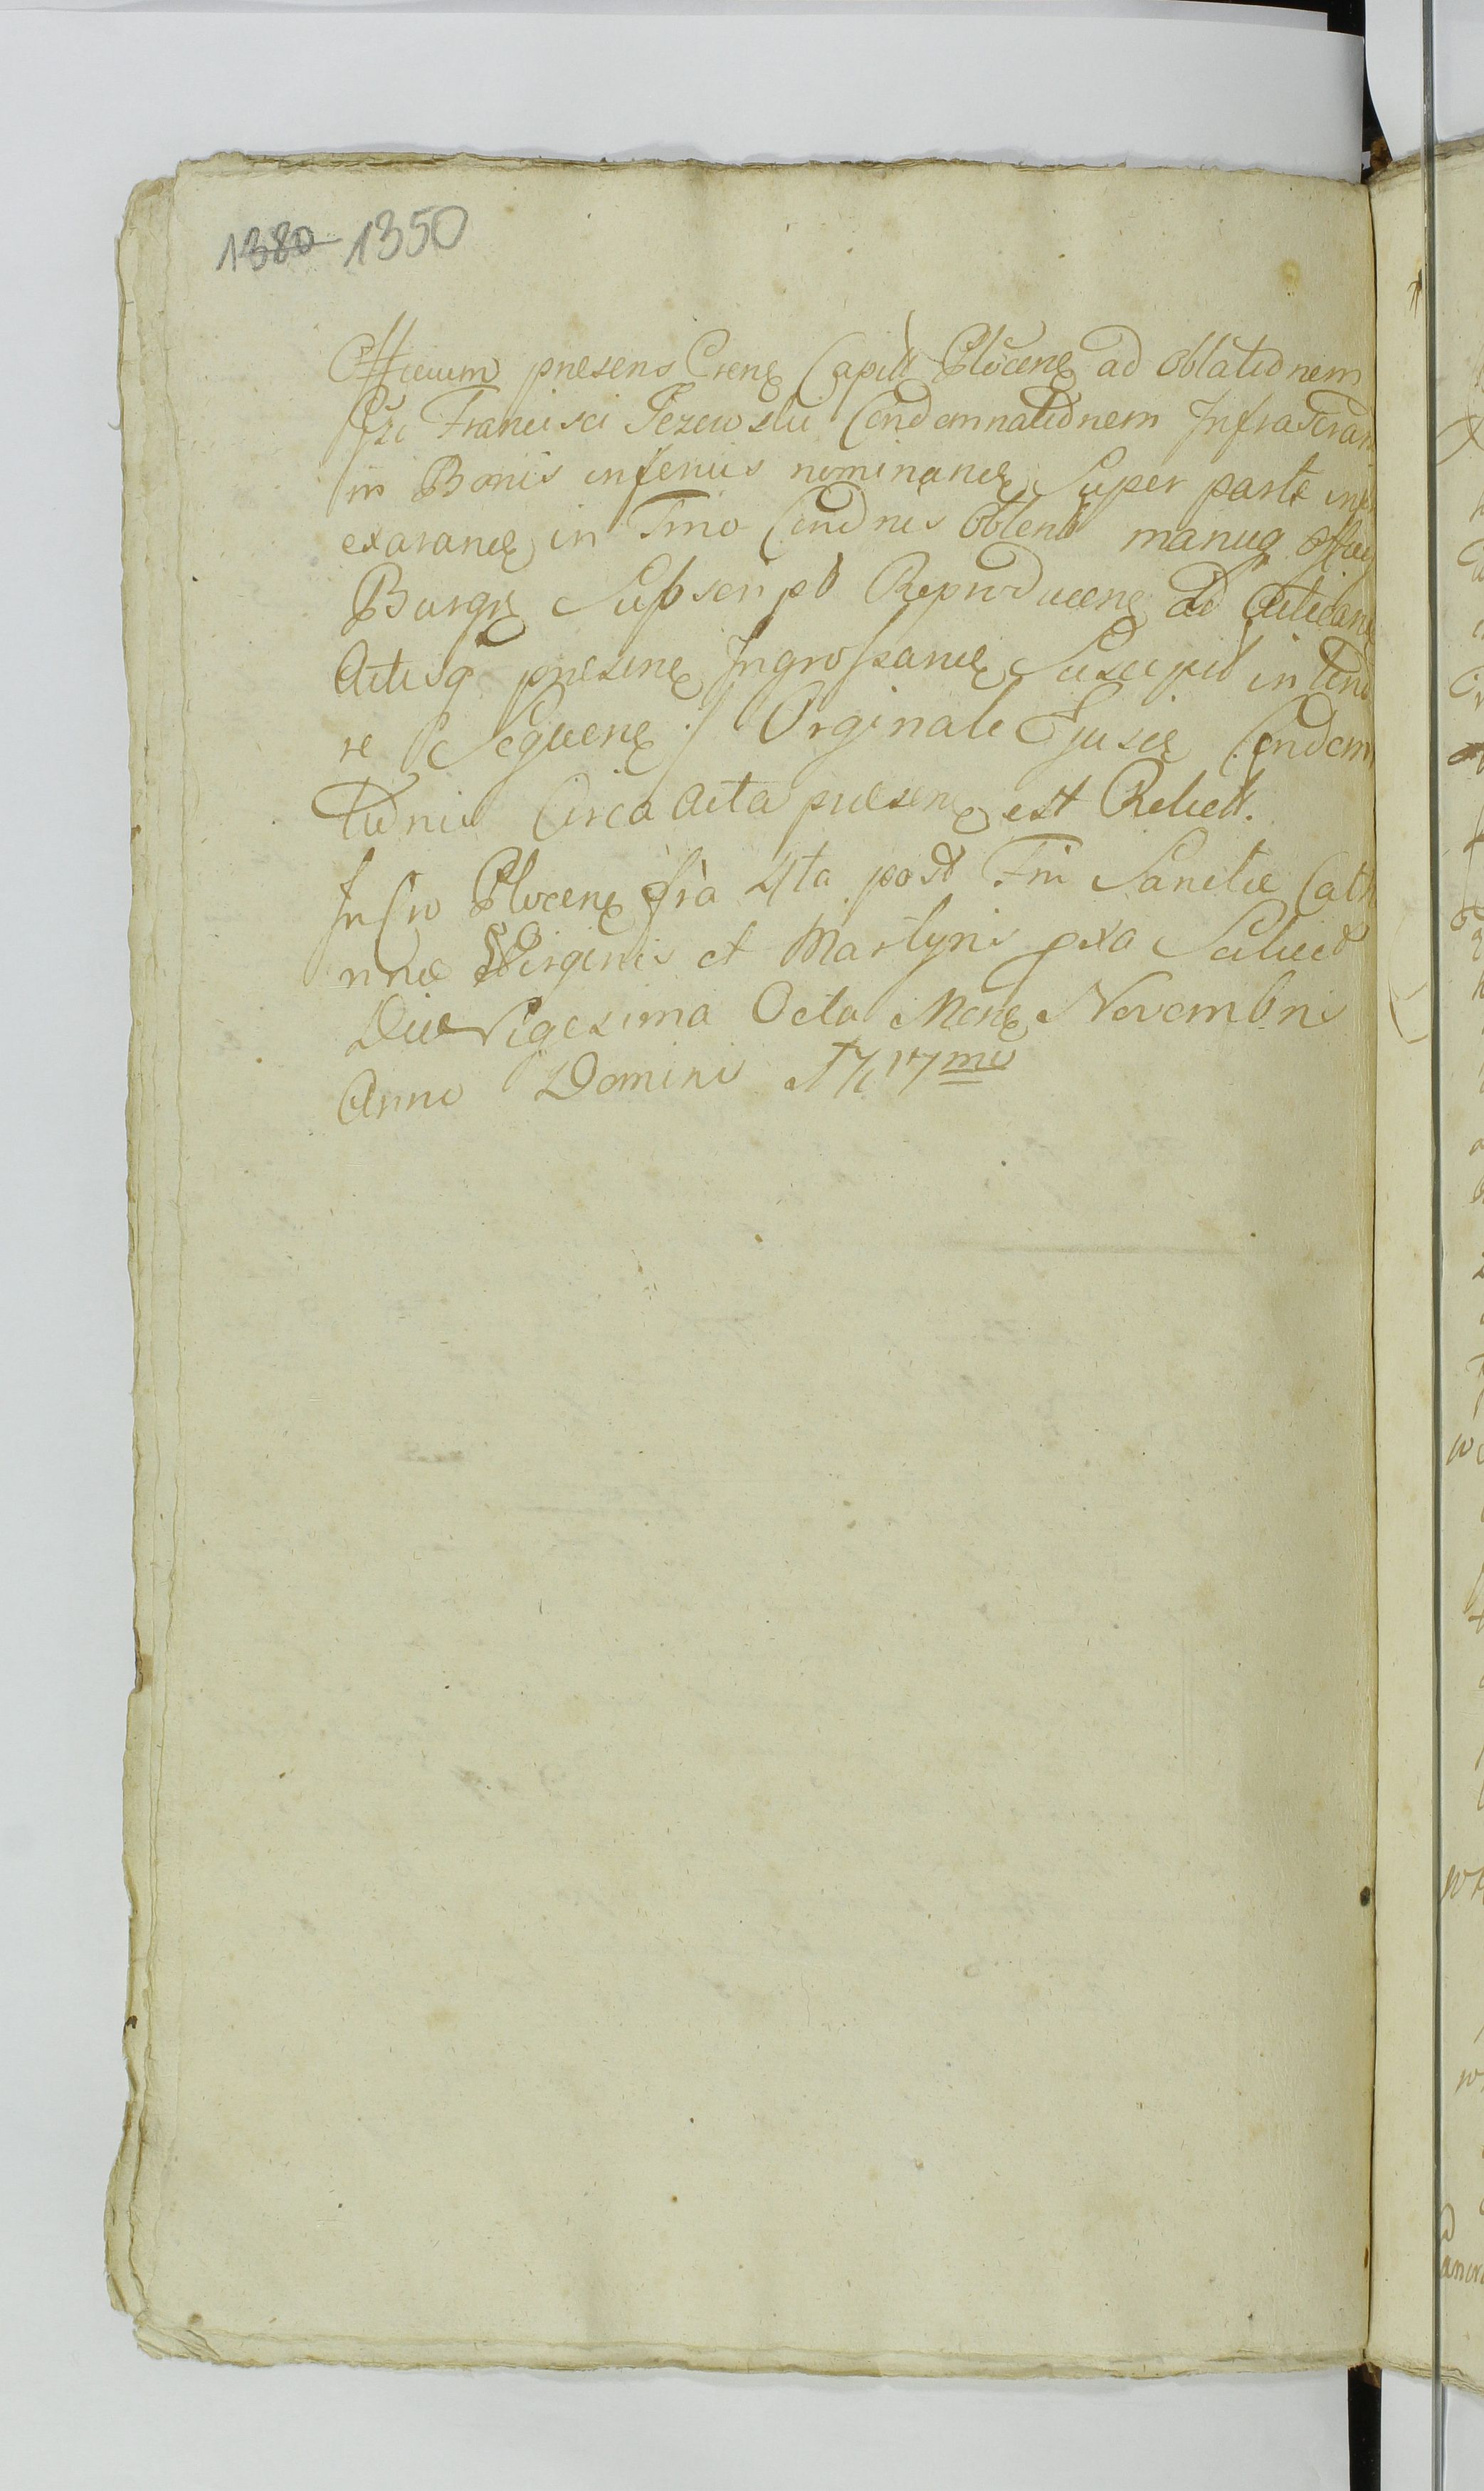 1380 1350
Officium præsens Crense Capitt Plocense ad oblationem
Francisci Jezewski Condemnationem Infrascram
in Bonis inferius nominan Super parte inf
exaran in Tmo Condnis obtent manuq Offici
Burg Subscript Reproducen ad Acticand
Actisq præsen Ingrossand Suscipit in Teno
re Sequen ./ Orginale Ejusd Condem
tionis Circa Acta præsen est Relict.
In Cro Plocen fria 4ta post Fm Sanctæ Cath
rinæ Virginis et Martyris pxa Scilicet
Die Vigesima Octa Mens Novembris
Anno Domini